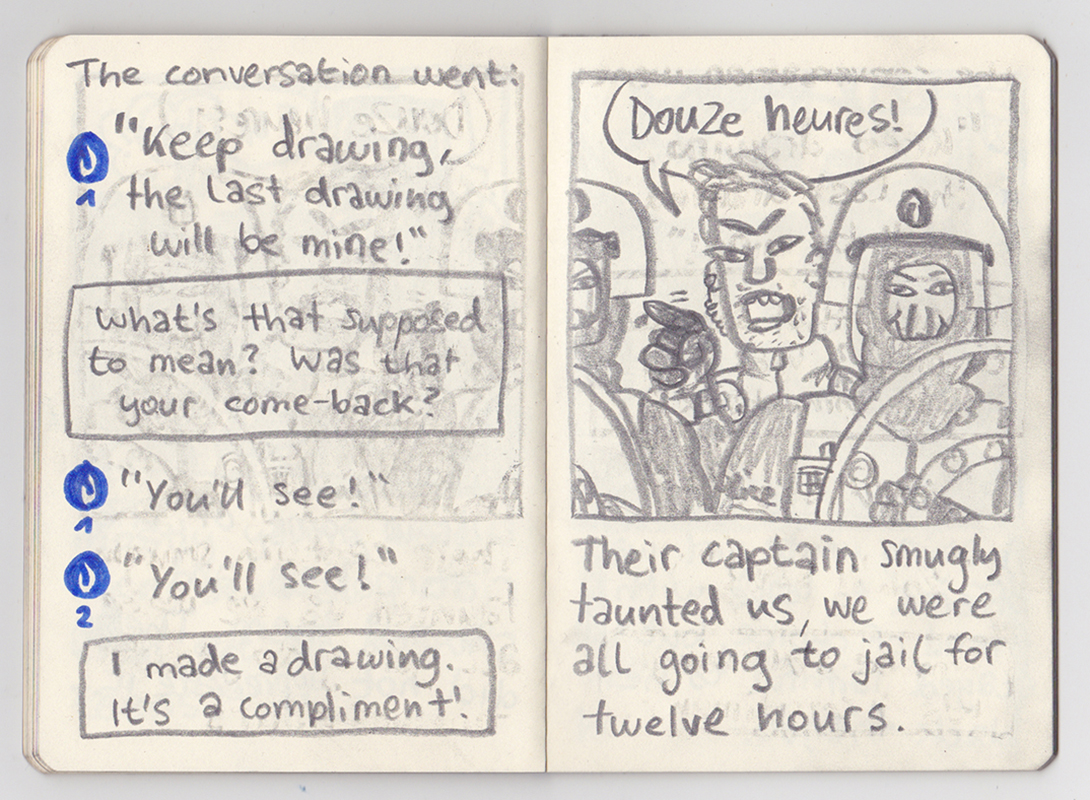 The conversation went:
"Keep drawing,
the last drawing
will be mine!"
1
What's that supposed
to mean? Was that
your come-back?
"You'll see!"
1
"You'll see!"
2
I made a drawing.
It's a compliment!
Douze heures!
Their captain smugly
taunted us, we were
all going to jail for
twelve hours.